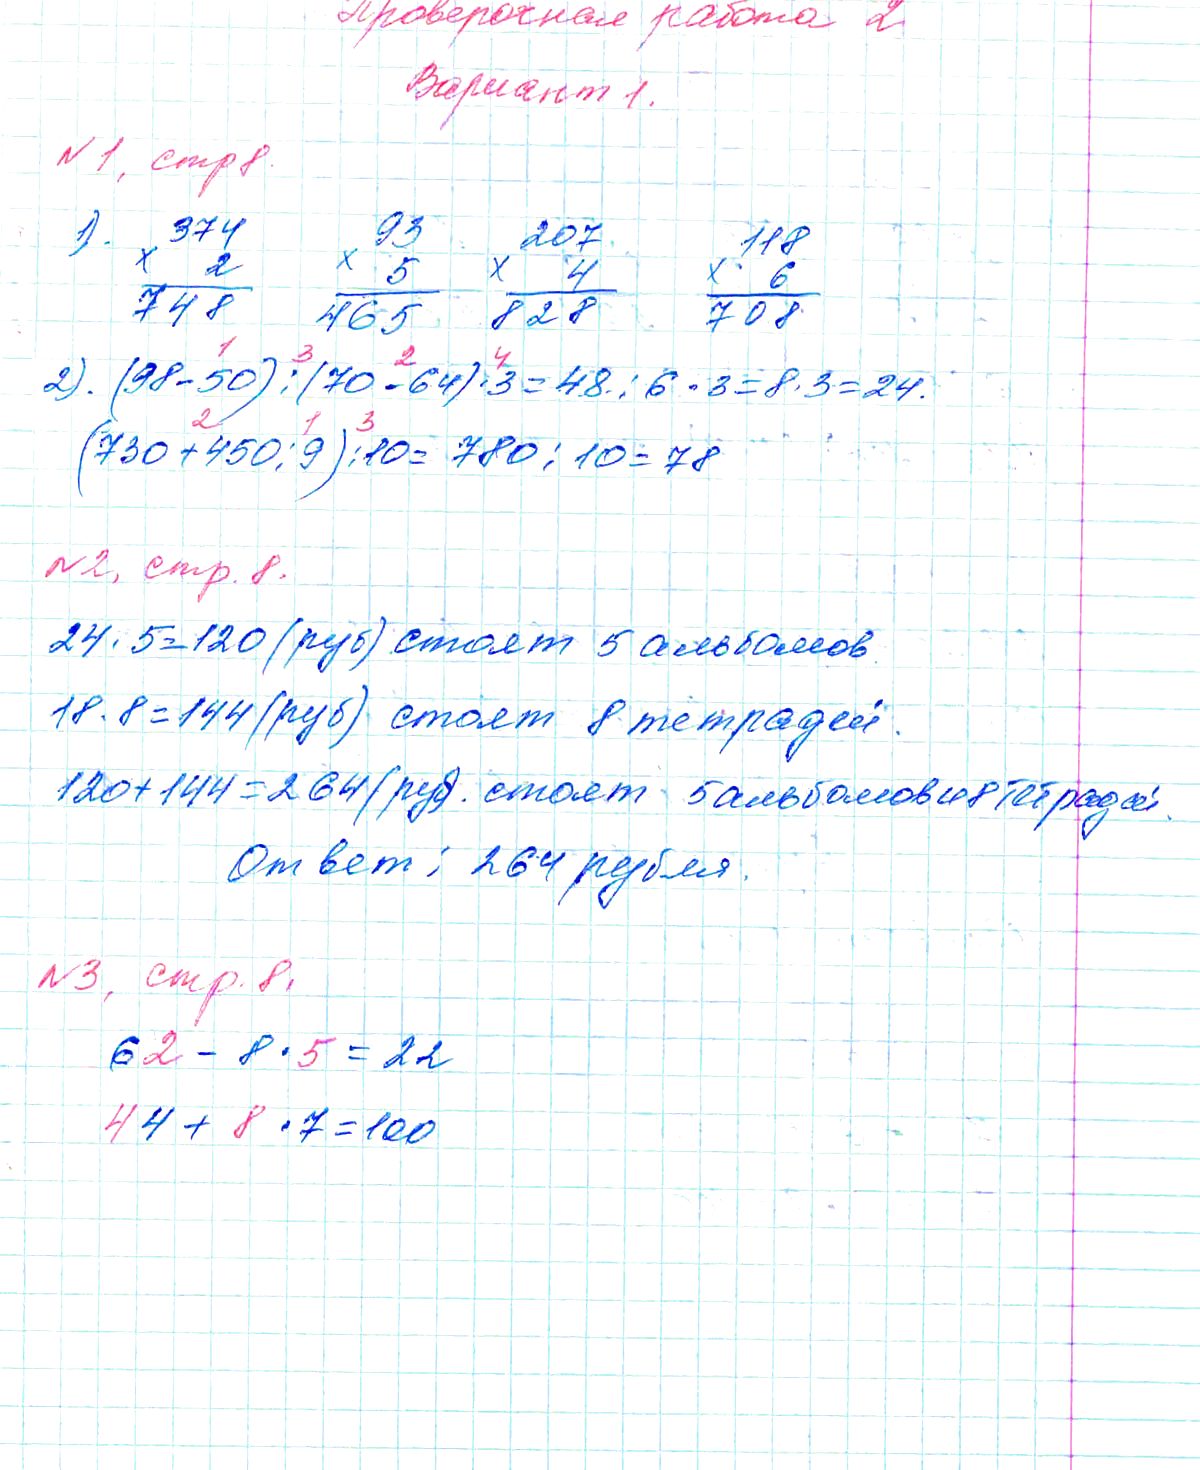 Проверочная работа 2
Вариант 1.
№1, стр 8.
1). 374 93 207 118
× 2 × 5 × 4 × 6
748 465 828 708
1 3 2 4
2). (98-50):(70-64)·3=48:6·3=8·3=24.
2 1 3
(730+450:9):10=780:10=78
№2, стр. 8.
24·5=120(руб) стоят 5 альбомов.
18·8=144(руб) стоят 8 тетрадей.
120+144=264(руб). стоят 5 альбомов и 8 тетрадей.
Ответ: 264 рубля.
№3, стр. 8.
62 - 8·5=22
44+8·7=100